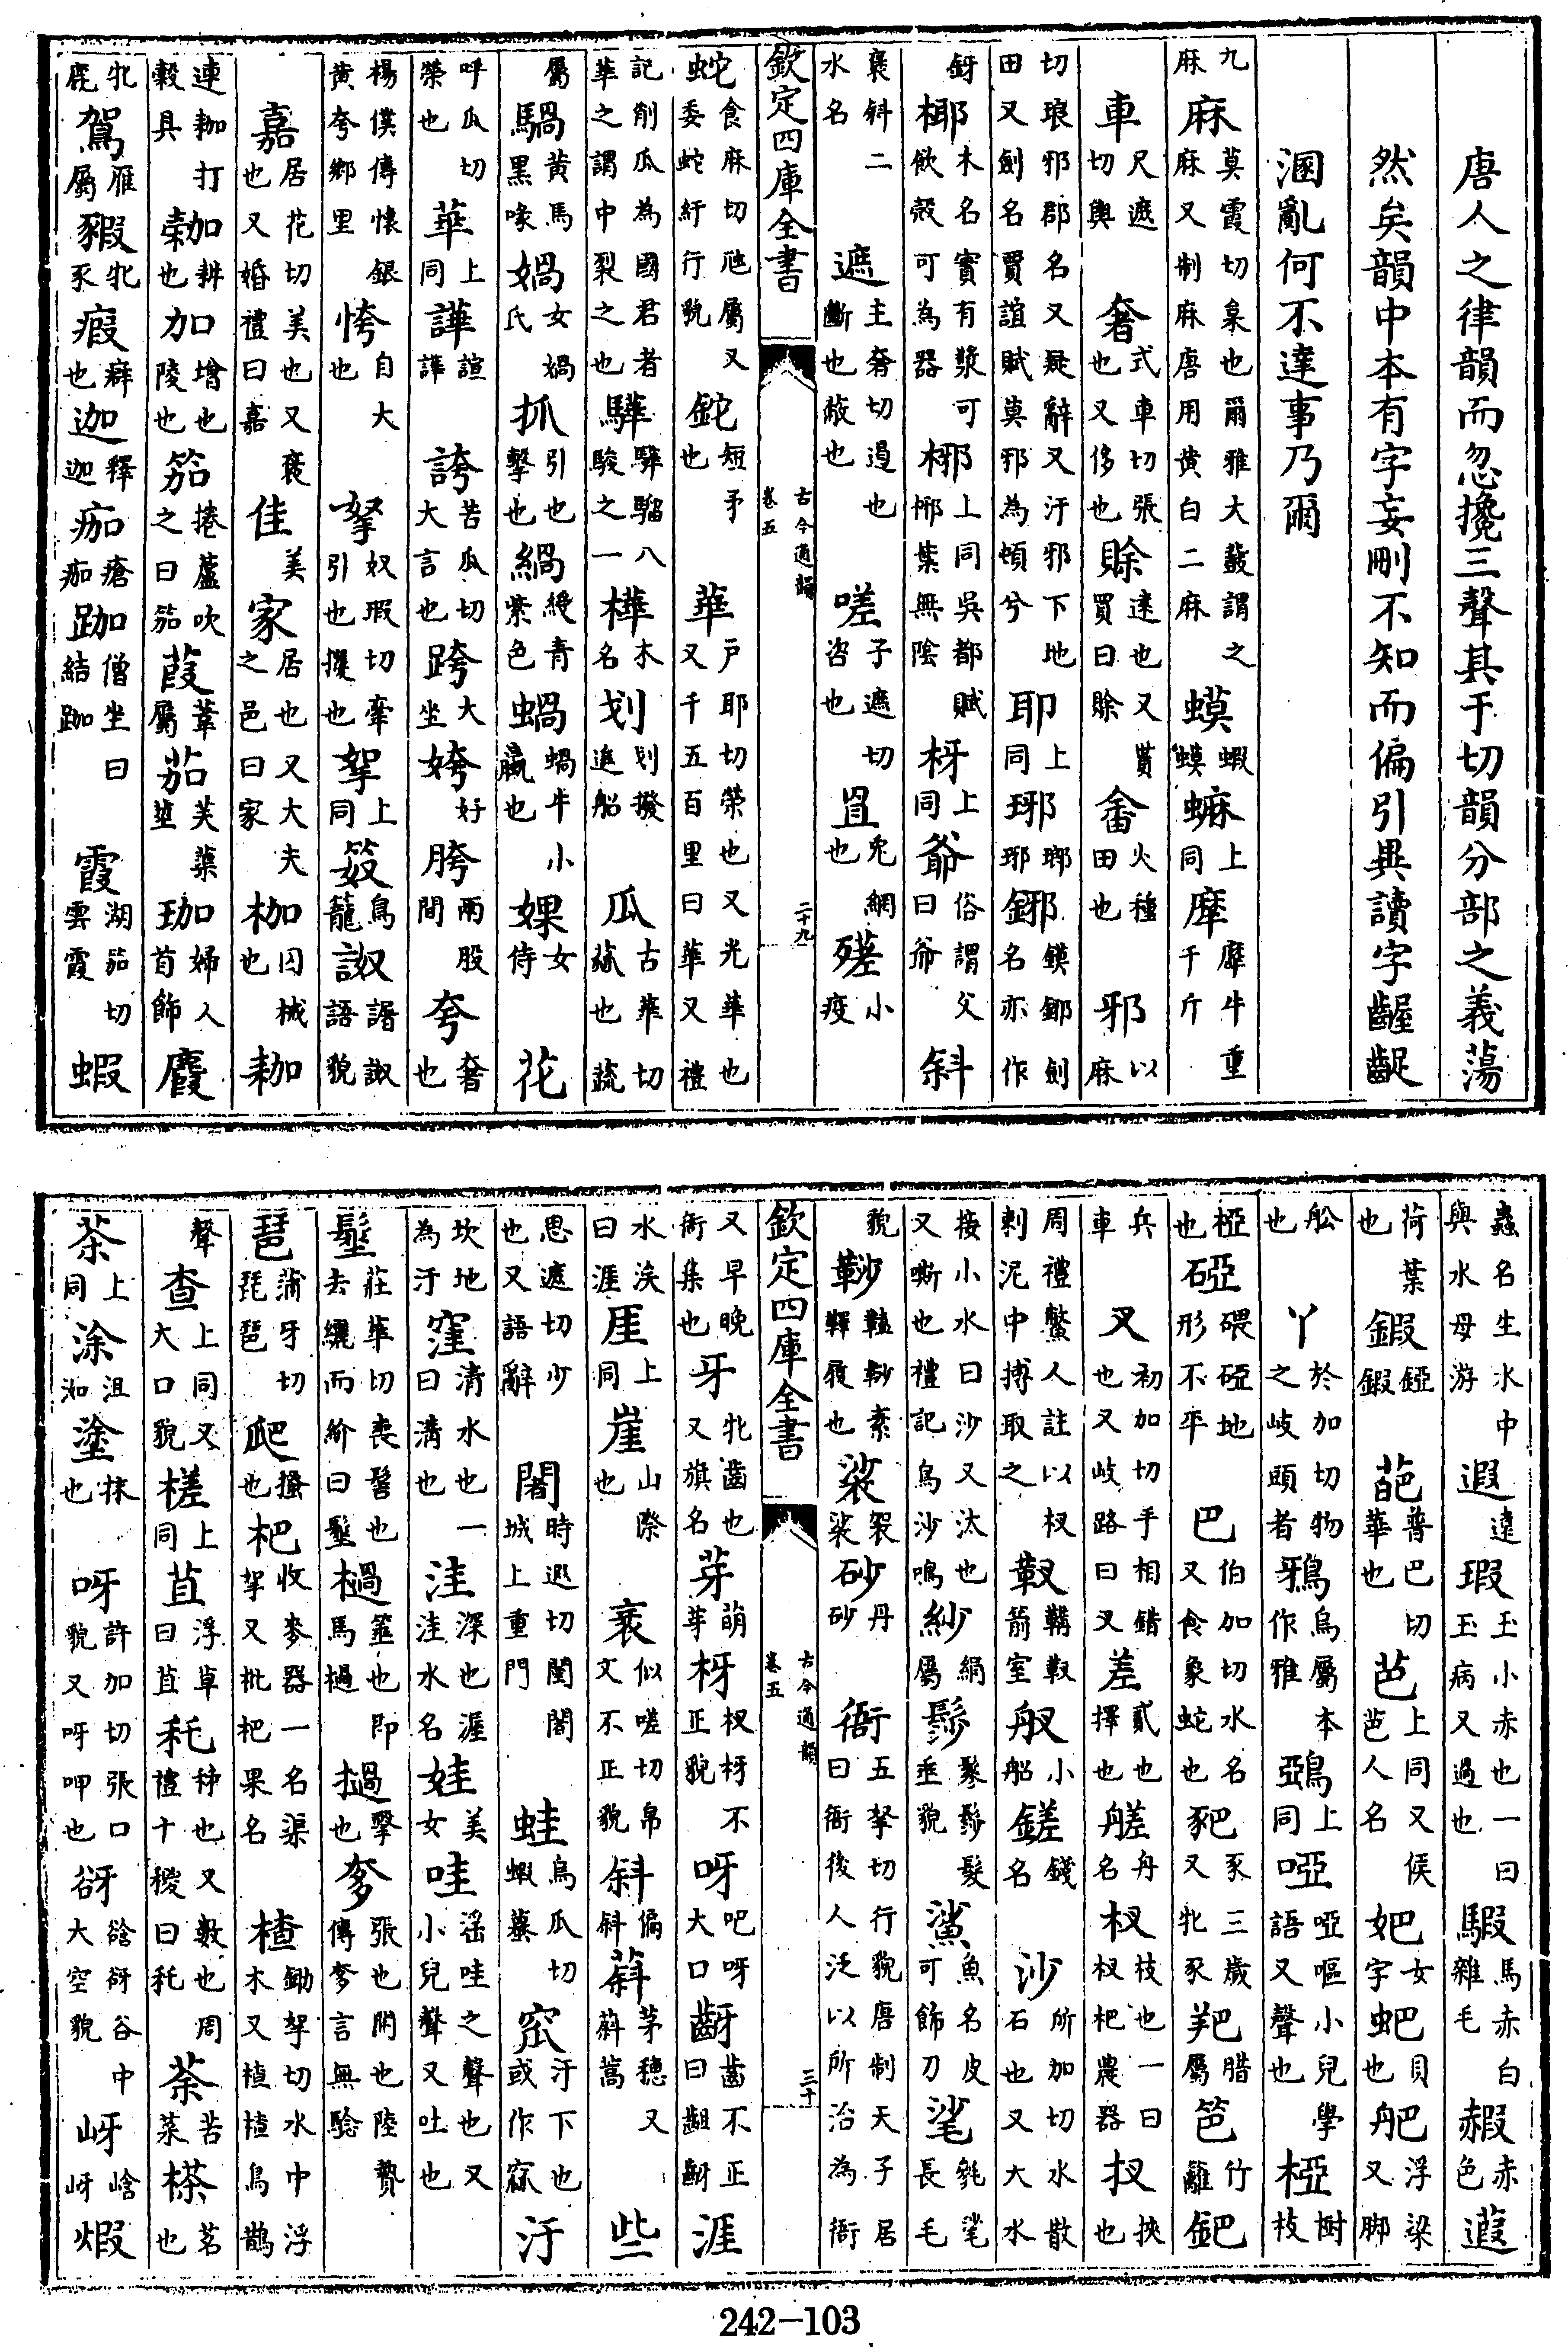 唐人之律韻而忽攙三聲其于切韻分部之義蕩
然矣韻中本有字妄刪不知而偏引異讀字齷齪
溷亂何不達事乃爾
九麻麻莫霞切枲也爾雅大鼗謂之麻又制麻唐用黃白二麻蟆蝦蟆䗫上同犘犘牛重千斤
車尺遮切輿奢式車切張也又侈也賒遠也又貰買曰賒畬火種田也邪以麻
切琅邪郡名又疑辭又汙邪下地田又劍名賈誼賦莫邪為頓兮耶上同琊瑯琊鋣鏌鎁劍名亦作
釾椰木名實有漿可飲殼可為器㭨上同吳都賦㭨葉無陰枒上同爺俗謂父曰爺斜
褒斜二水名遮主奢切遏也斷也蔽也嗟子遮切咨也罝兔網也𣩈小疫
欽定四庫全書 古今通韻卷五 二十九
蛇食麻切虺屬又委蛇紆行貌鉈短矛也華戶耶切榮也又光華也又千五百里曰華又禮
記削瓜為國君者華之謂中裂之也驊驊騮八駿之一樺木名划划撥進船瓜古華切蓏也蔬
屬騧黃馬黑喙媧女媧氏抓引也擊也緺綬青紫色蝸蝸牛小蠃也婐女侍花
呼瓜切榮也華上同譁諠譁誇苦瓜切大言也跨大坐姱好胯兩股間夸奢也
楊僕傳懷銀黃夸鄉里恗自大也拏奴瑕切牽引也攫也挐上同笯鳥籠詉譇詉語貌
嘉居花切美也又褒也又婚禮曰嘉佳美家居也又大夫之邑曰家枷囚械也耞
連耞打穀具耕也加增也陵也笳捲蘆吹之曰笳葭葦屬茄芙蕖莖珈婦人首飾麚
牝鹿鴐雁屬豭牝豕瘕癖也迦釋迦痂瘡痂跏僧坐曰結跏霞湖笳切雲霞蝦
蟲名生水中與水母游遐遠瑕玉小赤也一曰玉病又過也騢馬赤白雜毛赮赤色蕸
荷葉也鍜錏鍜葩普巴切華也芭上同又侯芭人名妑女字蚆貝也舥浮梁又腳
舩也丫於加切物之岐頭者鴉烏屬本作雅鵶上同啞啞嘔小兒學語又聲也椏樹枝
椏也䃁碨䃁地形不平巴伯加切水名又食象蛇也豝豕三歲又牝豕羓腊屬笆竹籬鈀
兵車叉初加切手相錯也又岐路曰叉差貳也擇也艖舟名杈枝也一曰杈杷農器扠挾也
周禮鱉人註以杈刺泥中搏取之靫鞲靫箭室舣小船鎈錢名沙所加切水散石也又大水
接小水曰沙又汰也又嘶也禮記鳥沙鳴紗絹屬髿鬖髿髮垂貌鯊魚名皮可飾刀毟毿毟長毛
貌鞾履也裟袈裟砂丹砂衙五拏切行貌唐制天子居曰衙後人泛以所治為衙
欽定四庫全書 古今通韻卷五 三十
又早晚衙集也牙牝齒也又旗名芽萌芽枒杈枒不正貌呀吧呀大口齖齒不正曰齟齖涯
水涘曰涯厓上同崖山際也衺似嗟切帛文不正貌斜偏斜䔑茅穗又䔑蒿些
思遮切少也又語辭闍時遮切闉闍城上重門蛙烏瓜切蝦蟇窊汙下也或作窳汙
坎地為汙窪清水也一曰溝也洼深也渥洼水名娃美女哇淫哇之聲也又小兒聲又吐也
髽莊華切喪髻也去纚而紒曰髽檛箠也即馬檛撾擊也奓張也開也陸贄傳奓言無驗
琶蒲牙切琵琶爬搔也杷收麥器一名渠挐又枇杷果名楂鋤拏切水中浮木又楂楂鳥鵲
聲查上同又大口貌槎上同苴浮草曰苴秅秭也又數也周禮十稯曰秅荼苦菜搽茗也
茶上同涂沮洳塗抹也呀許加切張口貌又呀呷也谺谽谺谷中大空貌岈峆岈煆
242-103